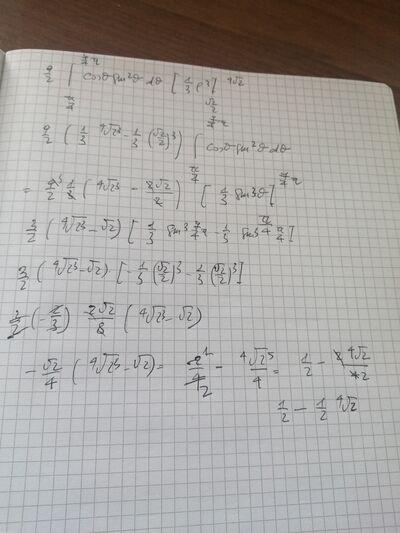 9/2 ∫_{π/4}^{5/4 π} cosθ sin²θ dθ [1/3 ρ³]_{√2/2}^{⁴√2}
9/2 (1/3 ⁴√2³ - 1/3 (√2/2)³) ∫_{π/4}^{5/4 π} cosθ sin²θ dθ
= 9/2 1/3 (⁴√2³ - 2√2/2) [1/3 sin³θ]
3/2 (⁴√2³ - √2) [1/3 sin³ π - 1/3 sin³ π/4]
3/2 (⁴√2³ - √2) [-1/3 (√2/2)³ - 1/3 (√2/2)³]
3/2 (-2/3) 2√2/8 (⁴√2³ - √2)
- √2/4 (⁴√2³ - √2) = 2/4 - ⁴√2⁵/4 = 1/2 - 2 ⁴√2/4
1/2 - 1/2 ⁴√2